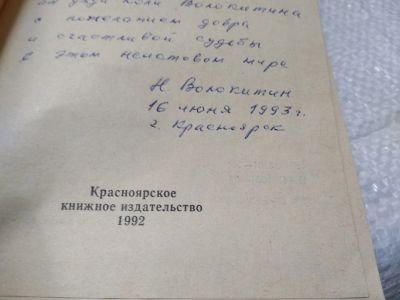 от дяди Коли Волокитина
с пожеланием добра
и счастливой судьбы
в этом неистовом мире
Н. Волокитин
16 июня 1993 г.
г. Красноярск
Красноярское
книжное издательство
1992